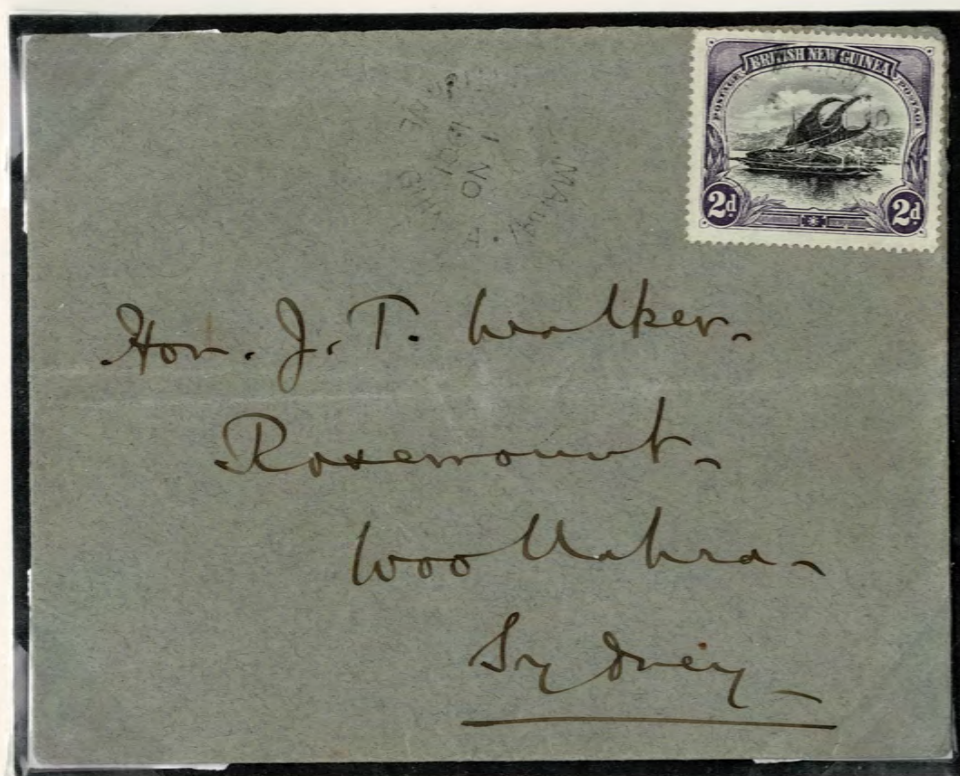 BRITISH NEW GUINEA
POSTAGE POSTAGE
2d 2d
1 NO
Hon. J. T. Walker.
Rosemount.
Woollahra.
Sydney